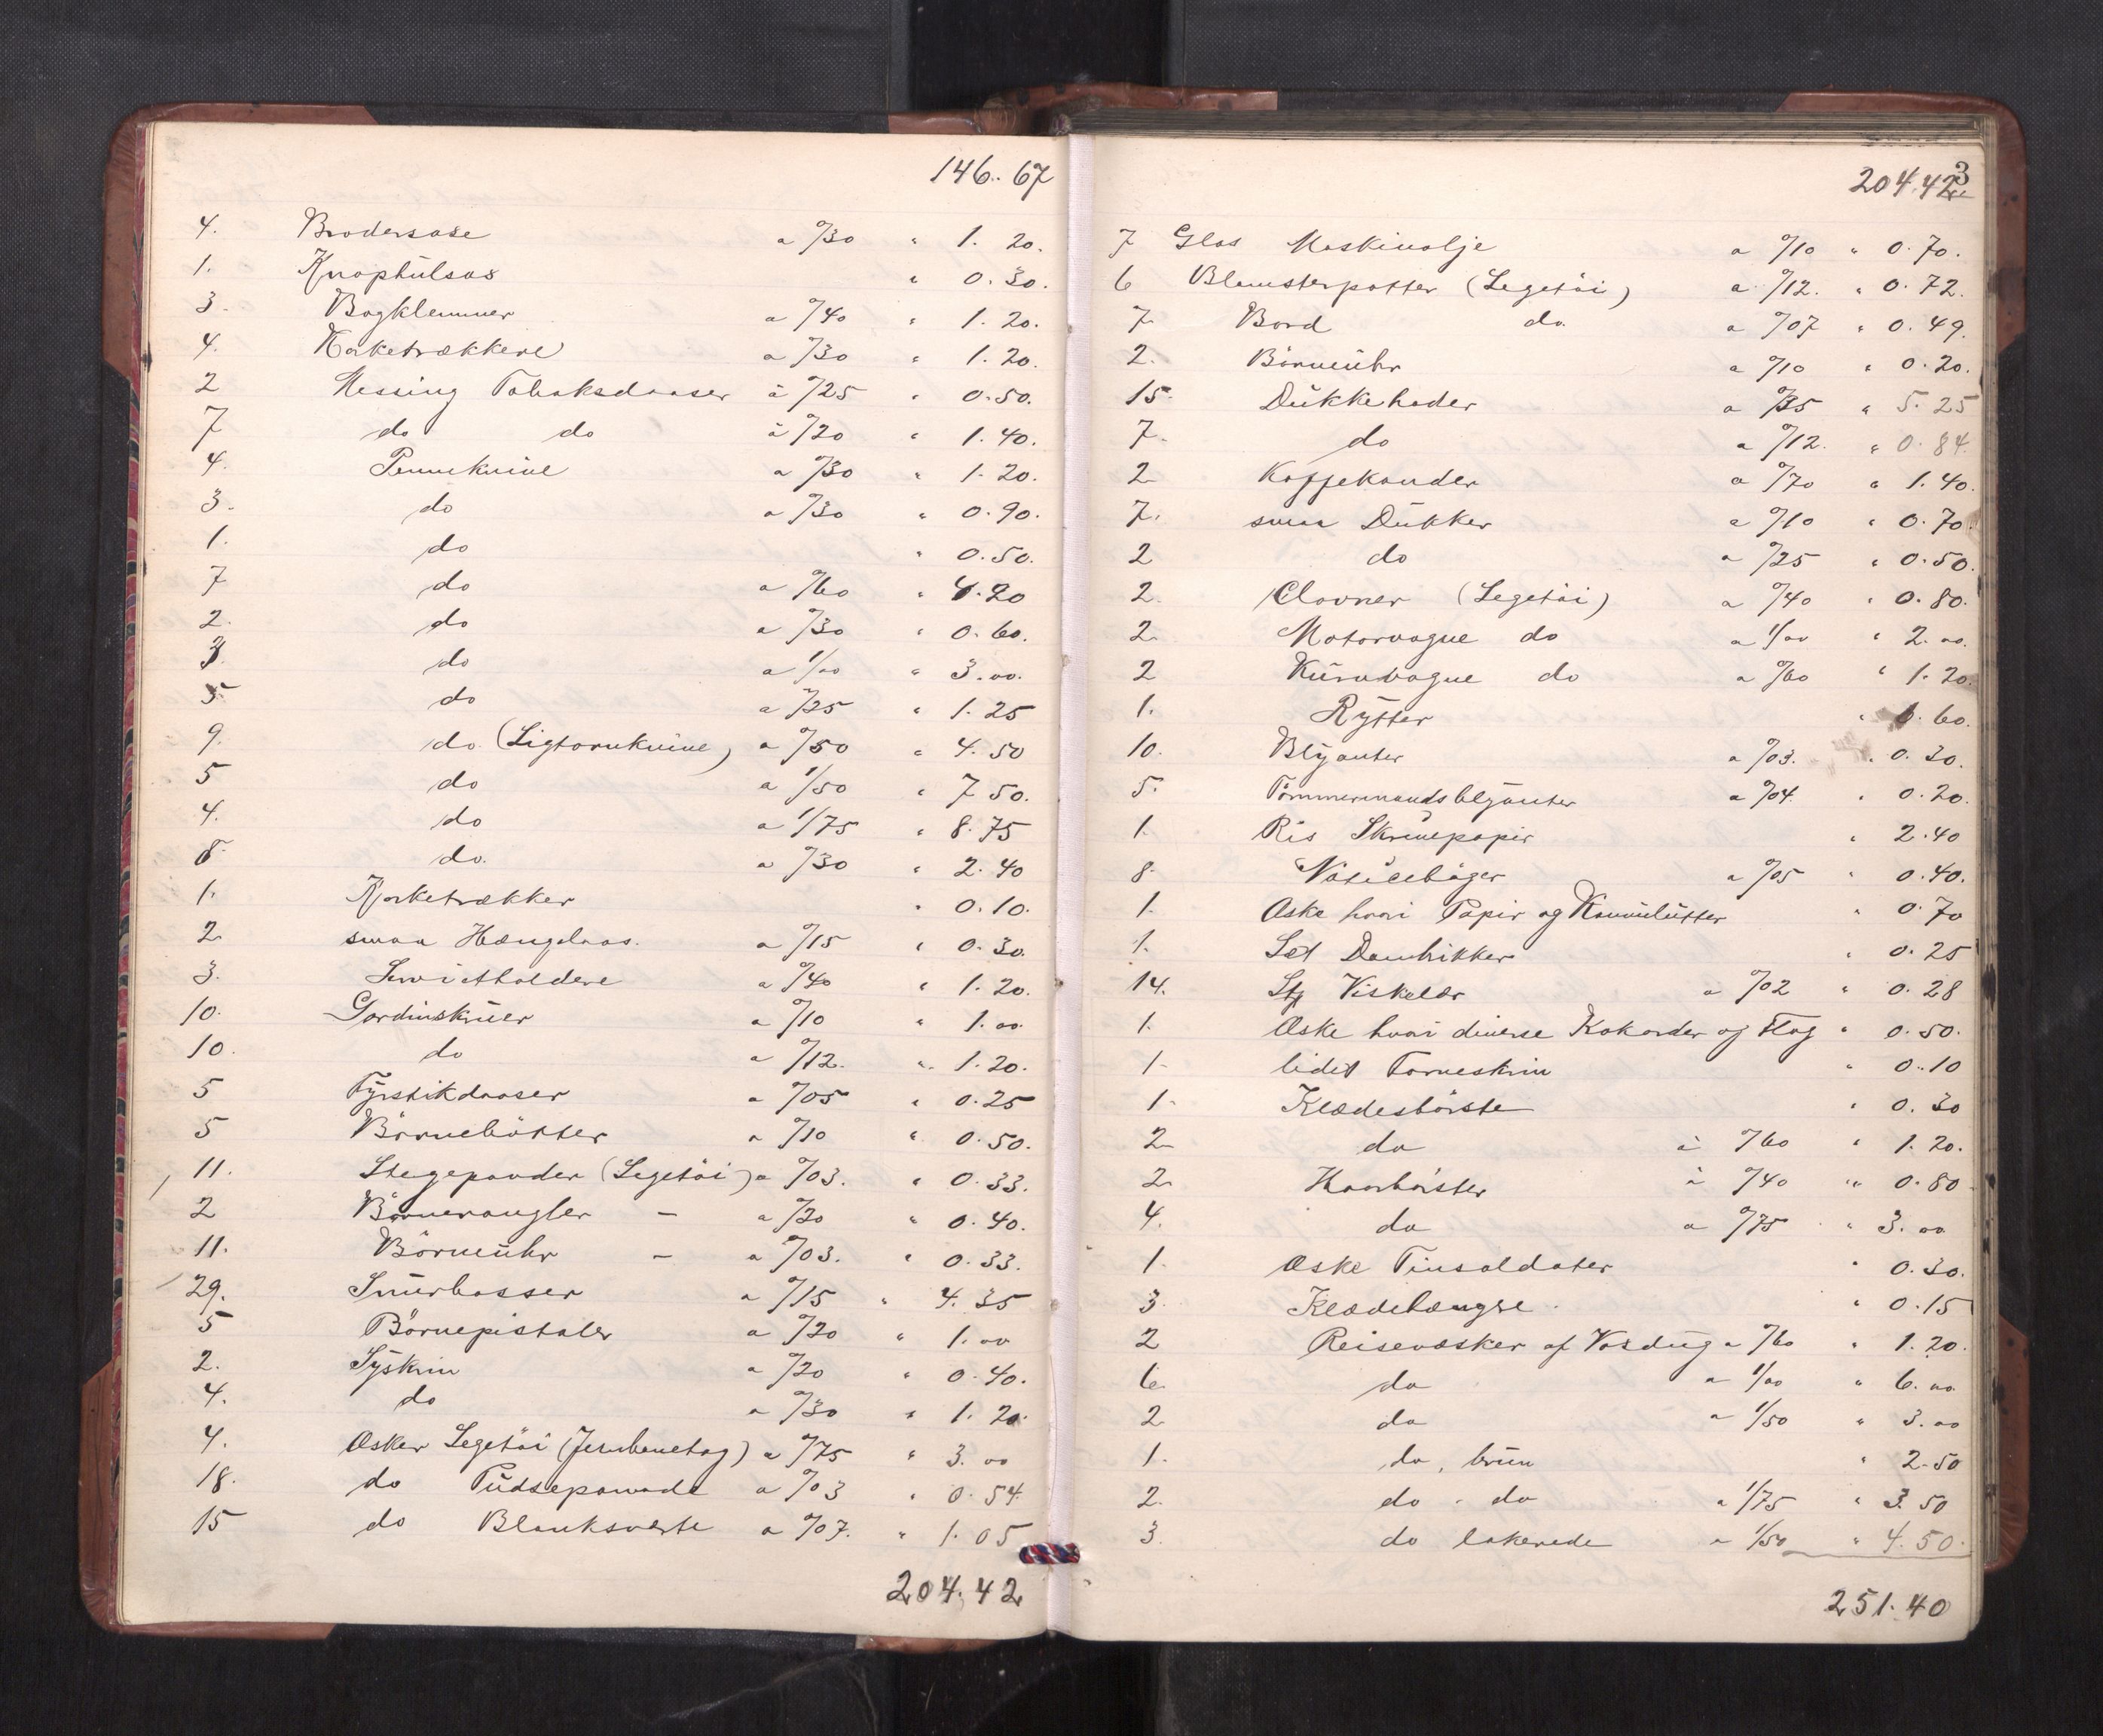 146.67
4. Brodersaxe a 0/30 " 1.20.
1. Knaphulsax " 0.30.
3. Bogklemmer a 0/40 " 1.20.
4. Korketrækkere a 0/30 " 1.20.
2 Messing Tobaksdaaser à 0/25 " 0.50.
7 do do à 0/20 " 1.40.
4. Penneknive a 0/30 " 1.20.
3. do a 0/30 " 0.90.
1. do " 0.50.
7 do a 0/60 " 4.20
2. do a 0/30 " 0.60.
3 do a 1/00 " 3.00.
5 do a 0/25 " 1.25
9. do (Ligtornknive) a 0/50 " 4.50
5 do a 1/50 " 7 50.
4. do a 1/75 " 8.75
8 do. a 0/30 " 2.40
1. Korketrækker " 0.10.
2 smaa Hængelaas. a 0/15 " 0.30.
3. Servietholdere a 0/40 " 1.20.
10. Gardinskruer a 0/10 " 1.00
10. do a 0/12. " 1.20.
5 Fyrstikdaaser a 0/05 " 0.25
5 Börnebötter a 0/10 " 0.50.
11. Stegepander (Legetöi) a 0/03. " 0.33.
2 Börnerangler - a 0/20 " 0.40.
11. Börneuhr - a 0/03. " 0.33.
29. Snurbasser a 0/15 " 4.35
5 Börnepistoler a 0/20 " 1.00
2. Syskrin a 0/20 " 0.40.
4. do a 0/30 " 1.20.
4. Æsker Legetöi (Jernbanetog) a 0/75 " 3.00
18. do Pudsepomade a 0/03 " 0.54.
15 do Blanksverte a 0/07. " 1.05
204.42
3
204.42
7 Glas Maskinolje a 0/10 " 0.70.
6 Blomsterpotter (Legetöi) a 0/12. " 0.72.
7 Bord do. a 0/07 " 0.49.
2. Börneuhr a 0/10 " 0.20.
15. Dukkehoder a 0/35 " 5.25
7. do a 0/12. " 0.84.
2 Kaffekander a 0/70 " 1.40.
7. smaa Dukker a 0/10 " 0.70.
2 do a 0/25 " 0.50.
2. Clovner (Legetöi) a 0/40 " 0.80.
2. Motorvogne do a 1/00 " 2.00.
2 Kurvvogne do a 0/60 " 1.20.
1. Rytter " 0.60.
10. Blyanter a 0/03. " 0.30.
5. Tömmermandsblyanter a 0/04. " 0.20.
1. Ris Skrivepapir " 2.40
8. Noticeböger a 0/05 " 0.40.
1. Æske hvori Papir og Konvolutter " 0.70
1. Set Dambrikker " 0.25
14. Stk Viskelær a 0/02 " 0.28
1. Æske hvori diverse Kokarder og Flag " 0.50.
1. lidet Farveskrin " 0.10
1. Klædesbörste " 0.30
2 do à 0/60 " 1.20.
2. Haarbörster à 0/40 " 0.80
4. do a 0/75 " 3.00
1. Æske Tinsoldater " 0.30.
3. Klædehængre. " 0.15
2 Reisevæsker af Voxdug a 0/60 " 1.20.
6 do a 1/00 " 6.00
2 do a 1/50 " 3.00
1. do, brun " 2.50
2. do. do a 1/75 " 3.50
3. do lakerede a 1/50 " 4.50.
251.40